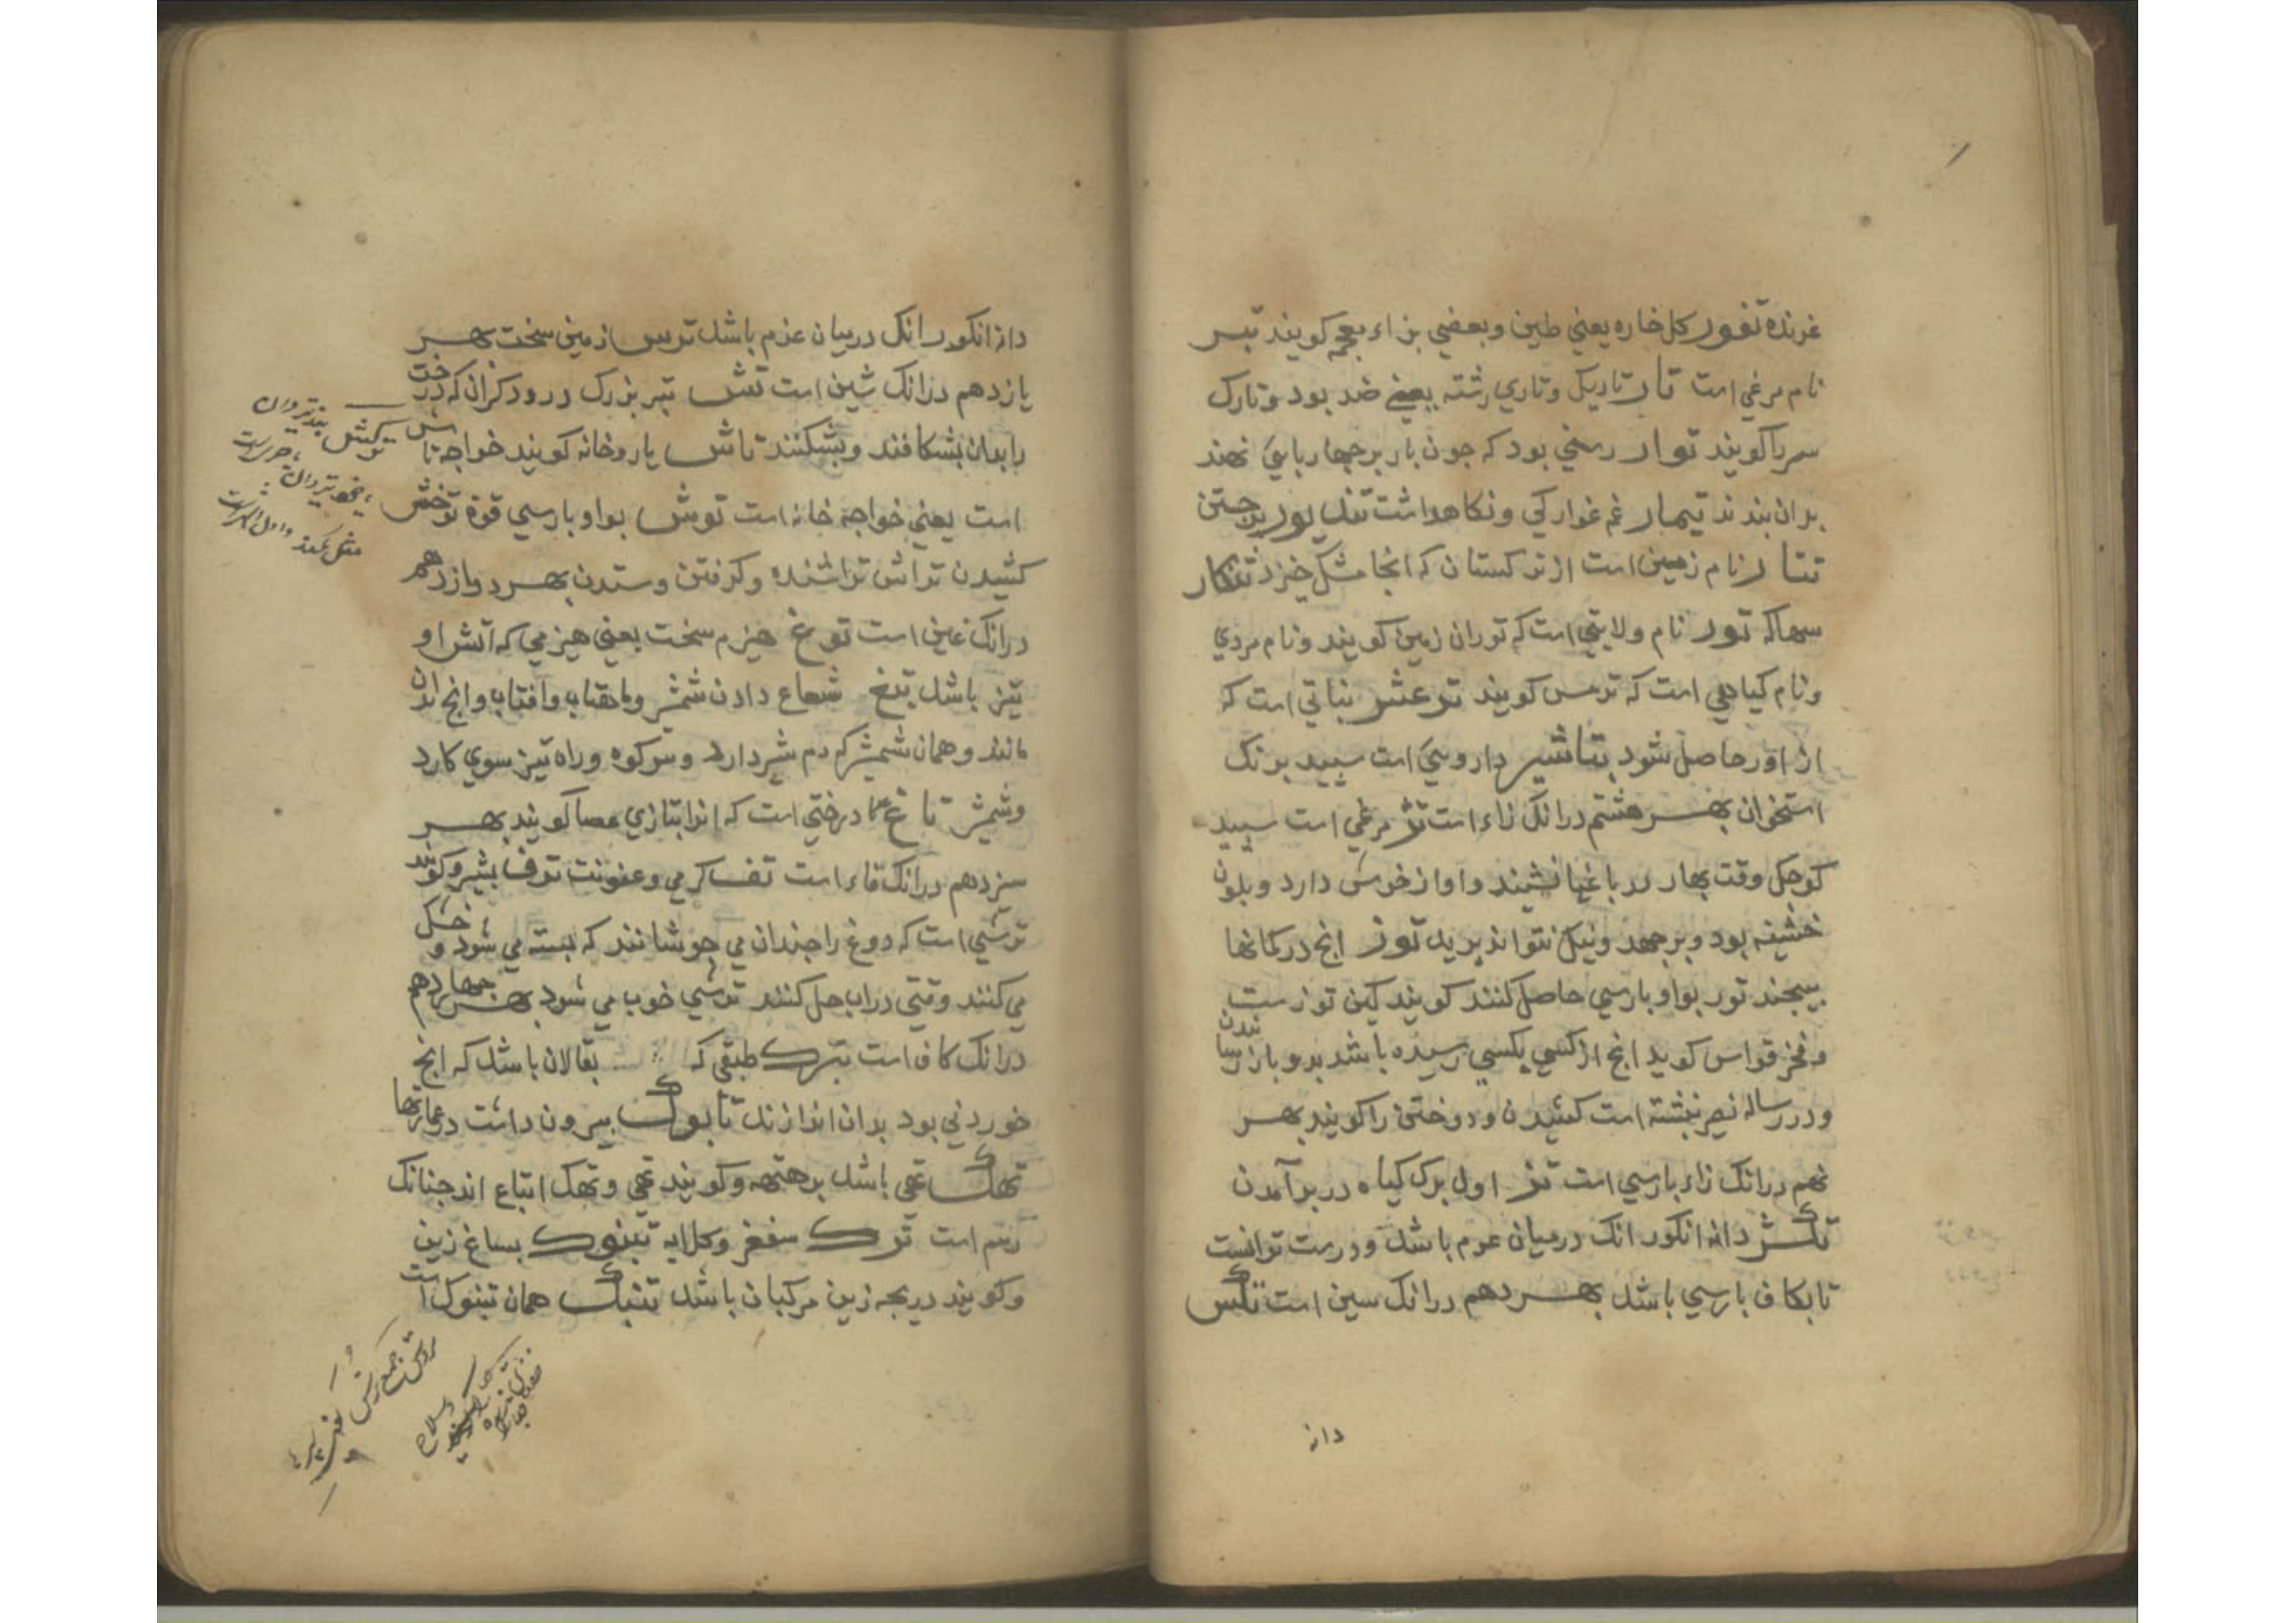 غرنده تغور کل خاره یعنی طین و بعضی بزاء معجمه کویند تبر
نام مرغی است تار تاریک و تاری رشته یعنی ضد بود و تارک
سر را کویند توار رسنی بود که جون بار بر جهار بایی نهند
بدان بندند تیمار غم خوارکی و نکاهداشت تندیور برجستن
تتار نام زمین است از ترکستان که انجا مشک خیزد تنکار
سهاکه تور نام ولایتی است که توران زمین کویند و نام مردی
و نام کیاهی است که ترمس کویند توعشر نباتی است که
از اور حاصل شود تباشیر داروییَ است سپید برنک
استخوان بهر هشتم درانک زاء است تز مرغی است سپید
کوجک وقت بهار در باغها نشیند و اواز خوش دارد و بلون
خشینه بود و برجهد و نیک نتواند پرید توز انج در کمانها
بیجند توز بواو بارسی حاصل کنند کویند کین توزست
و فخر قواس کوید انج از کسی بکسی رسیده باشد بدو باز رسانیدن
و در رساله نصیر نبشته است کشیدن و دوختن را کویند بهر
نهم درانک زاء بارسی است تز اول برک کیاه در برآمدن
تکژ دانه انکور انک درمیان غرم باشد و درست ترانست
تا بکاف بارسی باشد بهر دهم درانک سین است تکس
دانه
دانه انکور انک درمیان غرم باشد ترس زمین سخت بهر
یازدهم درانک شین است تش تبر بزرک درودکران که درخت
را بدان بشکافند و بشکنند تاش یار و خانه کویند خواجه تاش
است یعنی خواجه خانه است توش بواو بارسی قوة توخش
کشیدن تراش تراشنده و کرفتن و ستدن بهر دوازدهم
درانک غین است توغ هیزم سخت یعنی هیزمی که آتش او
تیز باشد تیغ شعاع دادن شمشیر و ماهتاب و افتاب و انج بدان
مانند و همان شمشیر که دم شیر دارد و سر کوه و راه تیز سوی کارد
و شمشیر تاغ درختی است که انرا بتازی عصا کویند بهر
سیزدهم درانک فاء است تف کرمی و عفونت توف بشیر و کویند
ترشی است که دوغ را جندان می جوشانند که بسته می شود و خشک
می کنند وقتی دراب حل کنند ترشی خوب می شود بهر جهاردهم
درانک کاف است تبرک طبقی که بقالان باشد که انج
خوردنی بود بدان اندازند تابوک بیرون داشت در عمارتها
تهک تهی باشد برهنه و کویند تهی و تهک اتباع اند جنانک
رسم است ترک سفغر و کلایه تبنوک بساغ زین
و کویند دریجه زین مرکبان باشد تنبک همان تبنوک است
ترکش تیردان